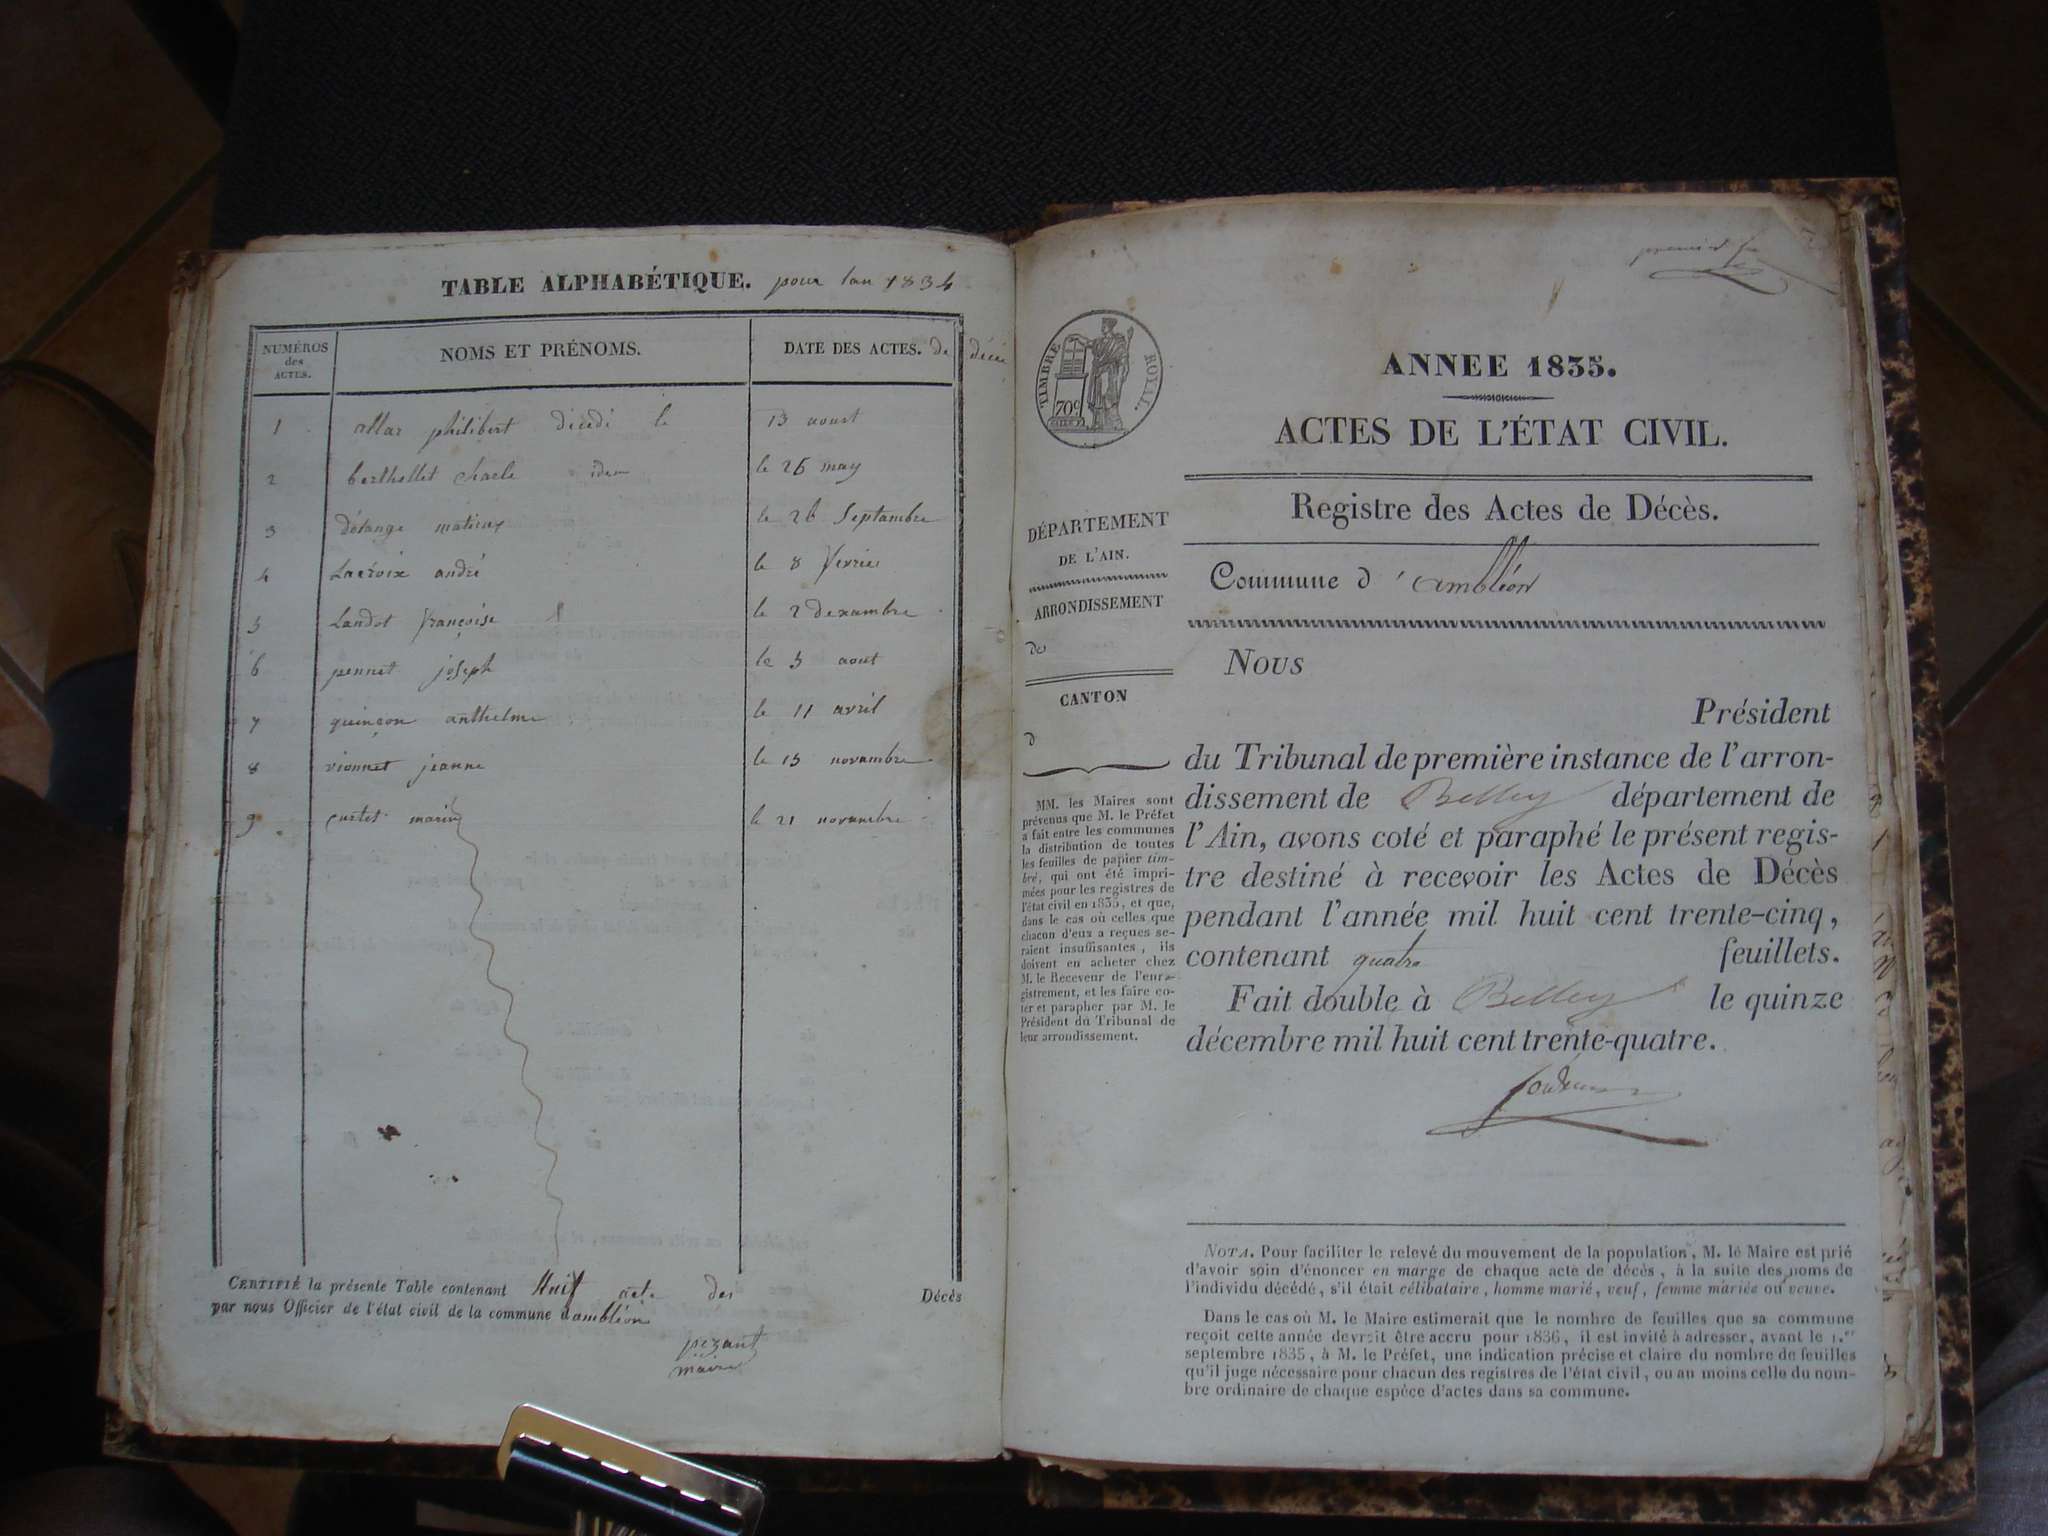 TABLE ALPHABÉTIQUE. pour lan 1834
NUMÉROS
des
ACTES.
NOMS ET PRÉNOMS.
DATE DES ACTES. de décé
1 allar philibert décédi le 13 aoust
2 berthellet charle idem le 26 may
3 délange matieux le 26 Septambre
4 Lacroix andré le 8 fevrier
5 Landot françoise le 2 dexambre
6 pennet joseph le 5 aout
7 quinçon anthelme le 11 avril
8 vionnet jeanne le 15 novambre
9 curtet marie le 21 novambre
CERTIFIÉ la présente Table contenant Huit acte des Décès
par nous Officier de l'état civil de la commune dambléon
pezant
maire
TIMBRE ROYAL.
70c
ANNEE 1835.
ACTES DE L'ÉTAT CIVIL.
Registre des Actes de Décès.
Commune d'ambléon
DÉPARTEMENT
DE L'AIN.
ARRONDISSEMENT
de
CANTON
d
MM. les Maires sont
prévenus que M. le Préfet
a fait entre les communes
la distribution de toutes
les feuilles de papier tim-
bré, qui ont été impri-
mées pour les registres de
l'état civil en 1835, et que,
dans le cas où celles que
chacun d'eux a reçues se-
raient insuffisantes, ils
doivent en acheter chez
M. le Receveur de l'enre-
gistrement, et les faire co-
ter et parapher par M. le
Président du Tribunal de
leur arrondissement.
Nous
Président
du Tribunal de première instance de l'arron-
dissement de Belley département de
l'Ain, avons coté et paraphé le présent regis-
tre destiné à recevoir les Actes de Décès
pendant l'année mil huit cent trente-cinq,
contenant quatre feuillets.
Fait double à Belley le quinze
décembre mil huit cent trente-quatre.
NOTA. Pour faciliter le relevé du mouvement de la population, M. le Maire est prié
d'avoir soin d'énoncer en marge de chaque acte de décès, à la suite des noms de
l'individu décédé, s'il était célibataire, homme marié, veuf, femme mariée ou veuve.
Dans le cas où M. le Maire estimerait que le nombre de feuilles que sa commune
reçoit cette année devrait être accru pour 1836, il est invité à adresser, avant le 1.er
septembre 1835, à M. le Préfet, une indication précise et claire du nombre de feuilles
qu'il juge nécessaire pour chacun des registres de l'état civil, ou au moins celle du nom-
bre ordinaire de chaque espèce d'actes dans sa commune.